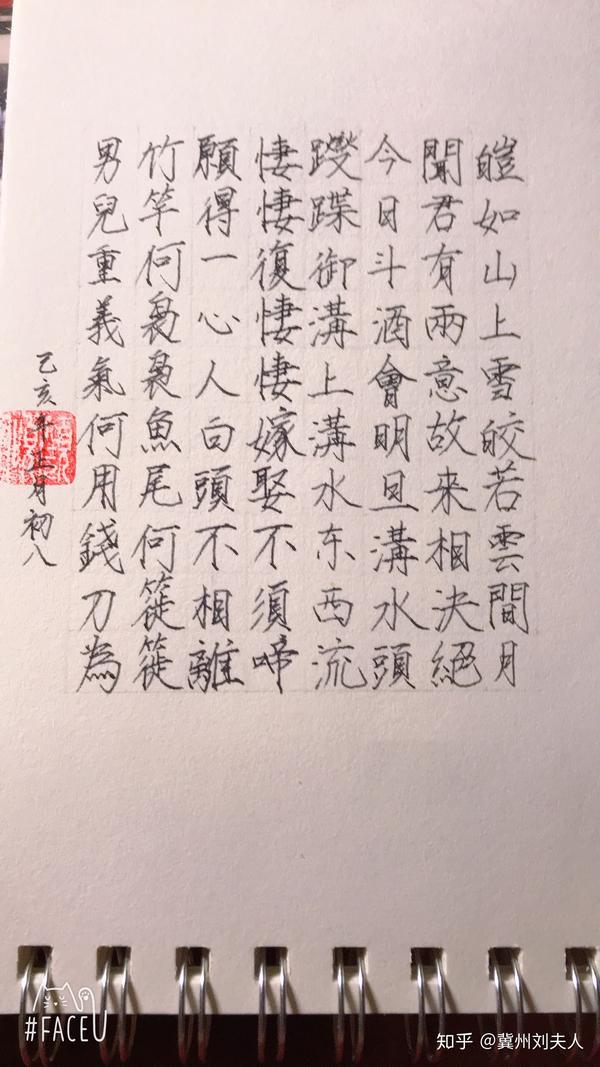 皚如山上雪皎若雲間月
聞君有兩意故来相決絕
今日斗酒會明旦溝水頭
躞蹀御溝上溝水东西流
悽悽復悽悽嫁娶不須啼
願得一心人白頭不相離
竹竿何裊裊魚尾何簁簁
男兒重義氣何用錢刀為
己亥年正月初八
#FACEU
知乎 @冀州刘夫人